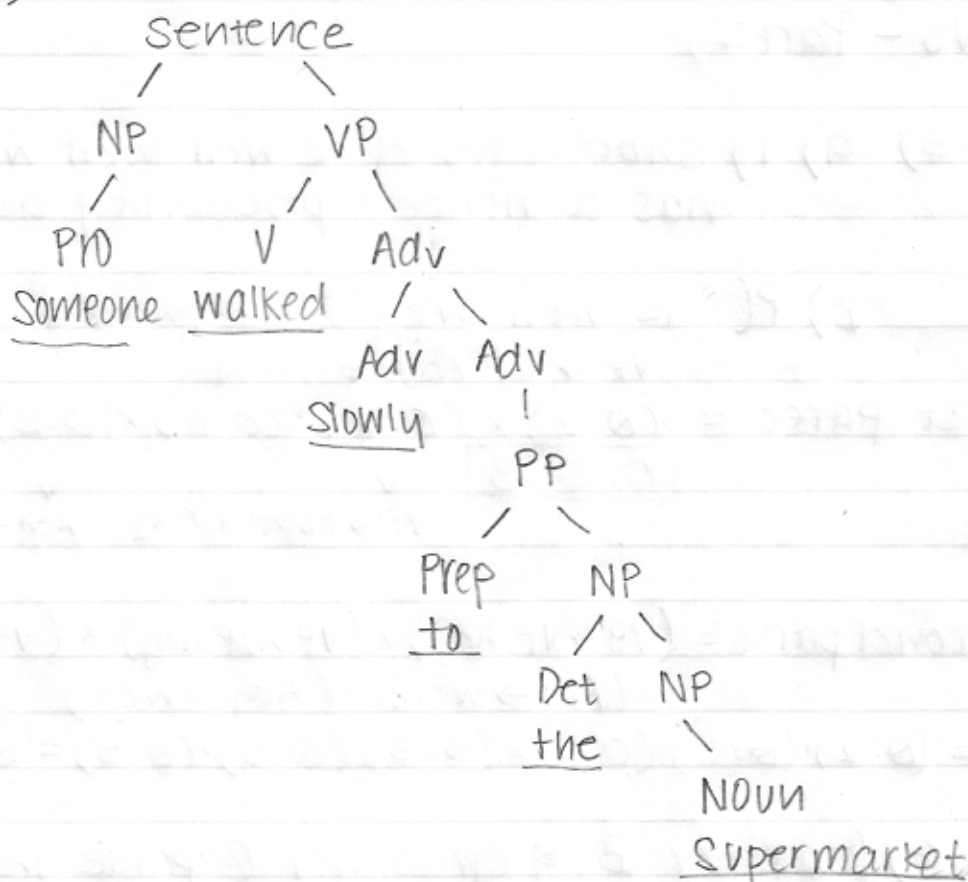 Sentence
NP VP
Pro V Adv
someone walked
Adv Adv
slowly
PP
Prep NP
to
Det NP
the
Noun
Supermarket